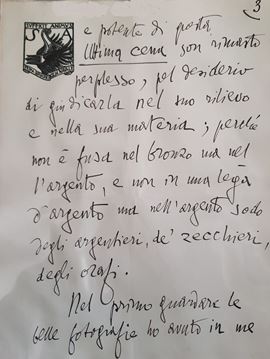 3
SVFFICIT ANIMVS
S A
e potente di questa
Ultima cena son rimasto
perplesso, pel desiderio
di giudicarla nel suo rilievo
e nella sua materia; perché
non è fusa nel bronzo ma nel
l'argento, e non in una lega
d'argento ma nell'argento sodo
degli argentieri, de' zecchieri,
degli orafi.
Nel primo guardare le
belle fotografie ho avuto in me